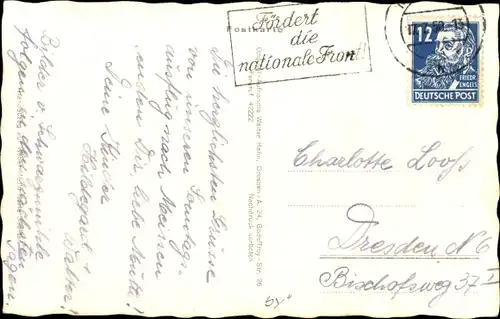 Postkarte
Fördert
die
nationale Front!
12
FRIEDR
ENGELS
DEUTSCHE POST
Die herzlichsten Grüsse
von unserem Sonntags-
ausflug nach Meissen
senden Dir, liebe Mutti!
Deine Kinder
Hildegard +
Walter!
Bilder v. Schwarzmühle
folgen in den nächsten
Tagen.
Walter Hahn, Dresden-A. 24,
Nachdruck verboten
Charlotte Looß
Dresden N 6
Bischofsweg 37 I